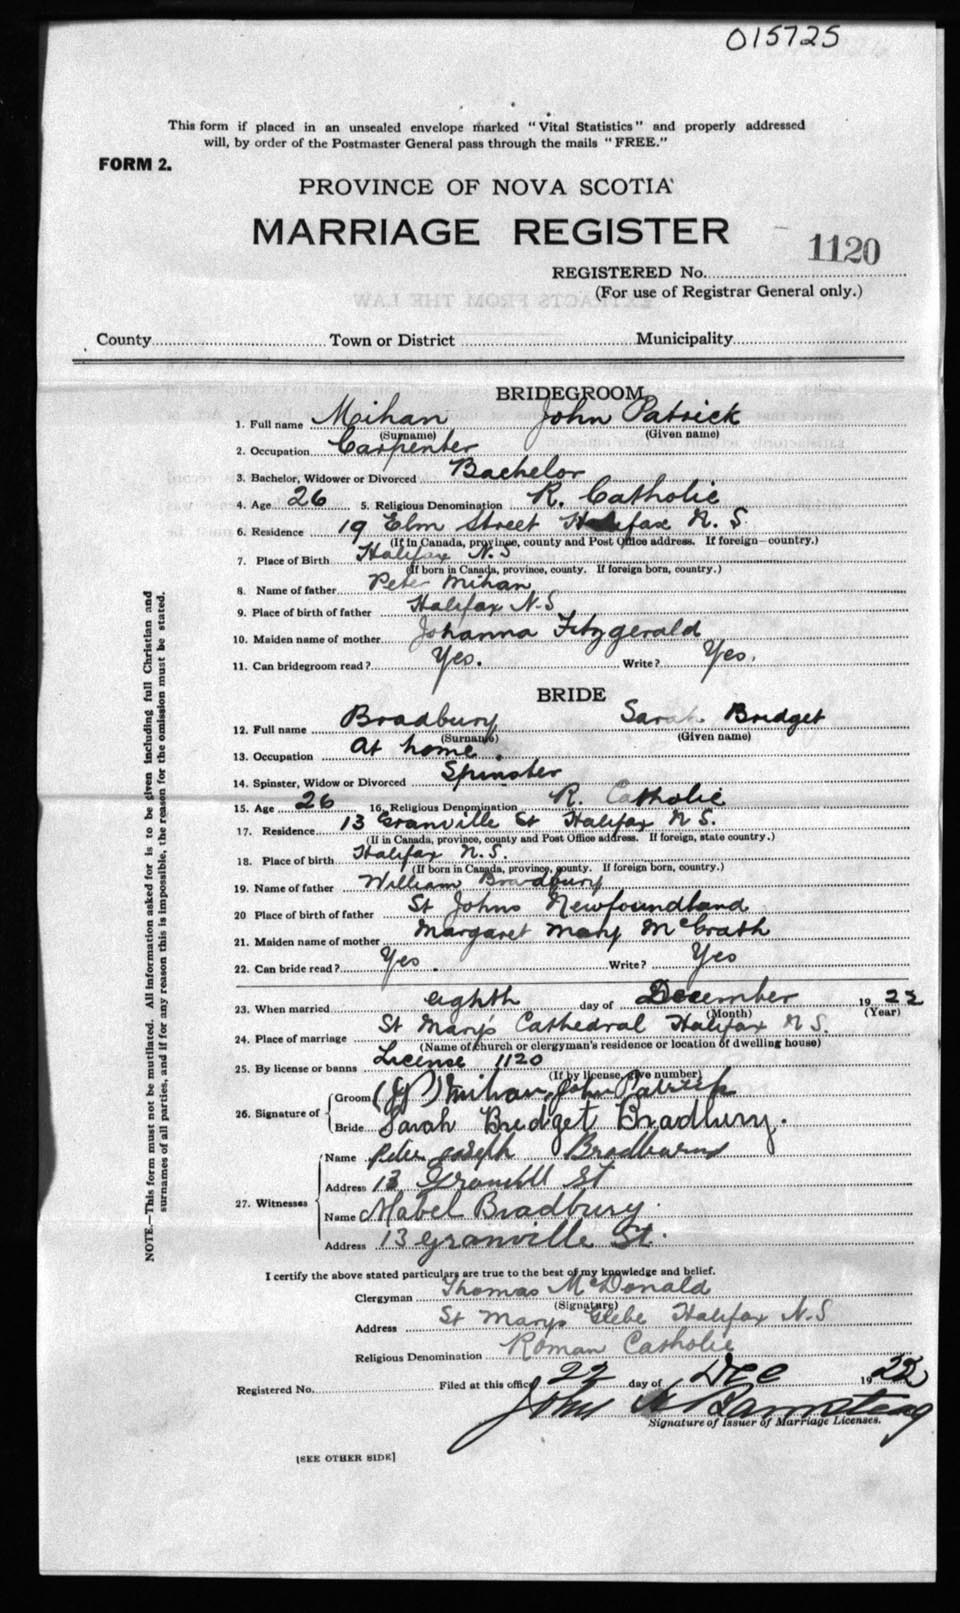 015725
This form if placed in an unsealed envelope marked "Vital Statistics" and properly addressed
will, by order of the Postmaster General pass through the mails "FREE."
FORM 2.
PROVINCE OF NOVA SCOTIA
MARRIAGE REGISTER
1120
REGISTERED No.
(For use of Registrar General only.)
County Town or District Municipality
BRIDEGROOM
1. Full name Mihan John Patrick
(Surname) (Given name)
2. Occupation Carpenter
3. Bachelor, Widower or Divorced Bachelor
4. Age 26 5. Religious Denomination R. Catholic
6. Residence 19 Elm Street Halifax N. S.
(If in Canada, province, county and Post Office address. If foreign—country.)
7. Place of Birth Halifax N. S
(If born in Canada, province, county. If foreign born, country.)
8. Name of father Peter Mihan
9. Place of birth of father Halifax N-S
10. Maiden name of mother Johanna Fitzgerald
11. Can bridegroom read? Yes. Write? Yes.
BRIDE
12. Full name Bradbury Sarah Bridget
(Surname) (Given name)
13. Occupation At home.
14. Spinster, Widow or Divorced Spinster
15. Age 26 16. Religious Denomination R. Catholic
17. Residence 13 Granville St Halifax N S.
(If in Canada, province, county and Post Office address. If foreign, state country.)
18. Place of birth Halifax N.S.
(If born in Canada, province, county. If foreign born, country.)
19. Name of father William Bradbury
20 Place of birth of father St Johns Newfoundland
21. Maiden name of mother Margaret Mary McGrath
22. Can bride read? Yes. Write? Yes
23. When married eighth day of December 1922
(Month) (Year)
24. Place of marriage St Mary's Cathedral Halifax N S.
(Name of church or clergyman's residence or location of dwelling house)
25. By license or banns License 1120
(If by license, give number)
26. Signature of Groom (J P) Mihan, John Patrick
Bride Sarah Bridget Bradbury.
27. Witnesses Name Peter Joseph Bradbury
Address 13 Granvill St
Name Mabel Bradbury.
Address 13 Granville St.
I certify the above stated particulars are true to the best of my knowledge and belief.
Clergyman Thomas McDonald
(Signature)
Address St Marys Glebe Halifax N-S
Religious Denomination Roman Catholic
Registered No. Filed at this office 22 day of Dec 1922
John
Signature of Issuer of Marriage Licenses.
[SEE OTHER SIDE]
NOTE.—This form must not be mutilated. All information asked for is to be given including full Christian and
surnames of all parties, and if for any reason this is impossible, the reason for the omission must be stated.